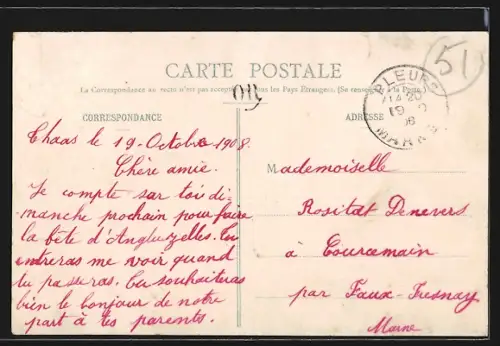 CARTE POSTALE
La Correspondance au recto n'est pas acceptée par tous les Pays Etrangers. (Se renseigner à la Poste.)
CORRESPONDANCE
ADRESSE
OR
51
PLEURS
19
08
MARNE
Chaas le 19 Octobre 1908.
Chère amie.
Je compte sur toi di-
manche prochain pour faire
la bête d'Angluzelles. Tu
entreras me voir quand
tu passeras. Tu souhaiteras
bien le bonjour de notre
part à tes parents.
Mademoiselle
Rositat Denevers
à Courcemain
par Faux-Fresnay
Marne